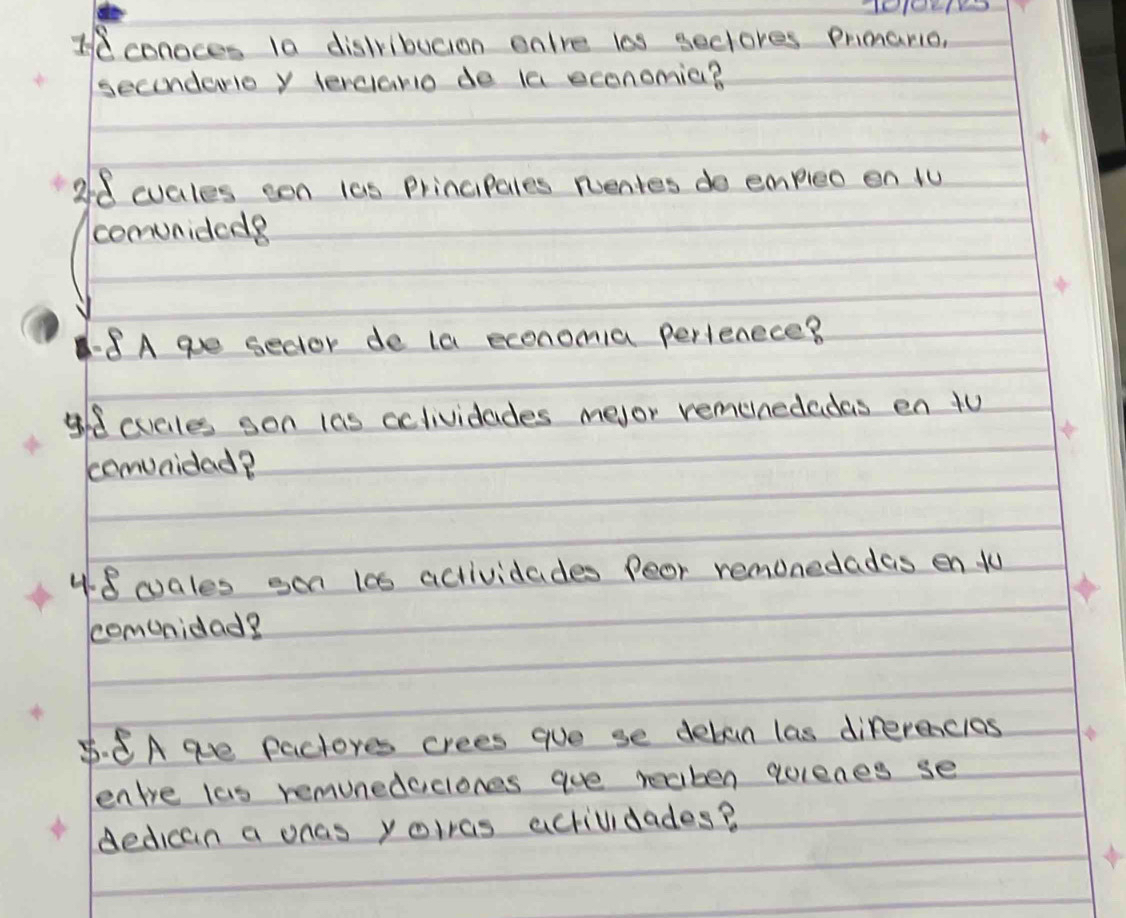 10/02/25
1¿conoces la distribucion entre los sectores Primario,
secundario y terciario de la economia?
2.¿cuales son las principales fuentes de empleo en tu
comunidad?
-¿A que sector de la economia pertenece?
3¿cuales son las actividades mejor remunedadas en tu
comunidad?
4.¿cuales son las actividades Peor remunedadas en tu
comunidad?
5.¿A que factores crees que se deban las diferencias
entre las remunedaciones que reciben quienes se
dedican a unas y otras actividades?